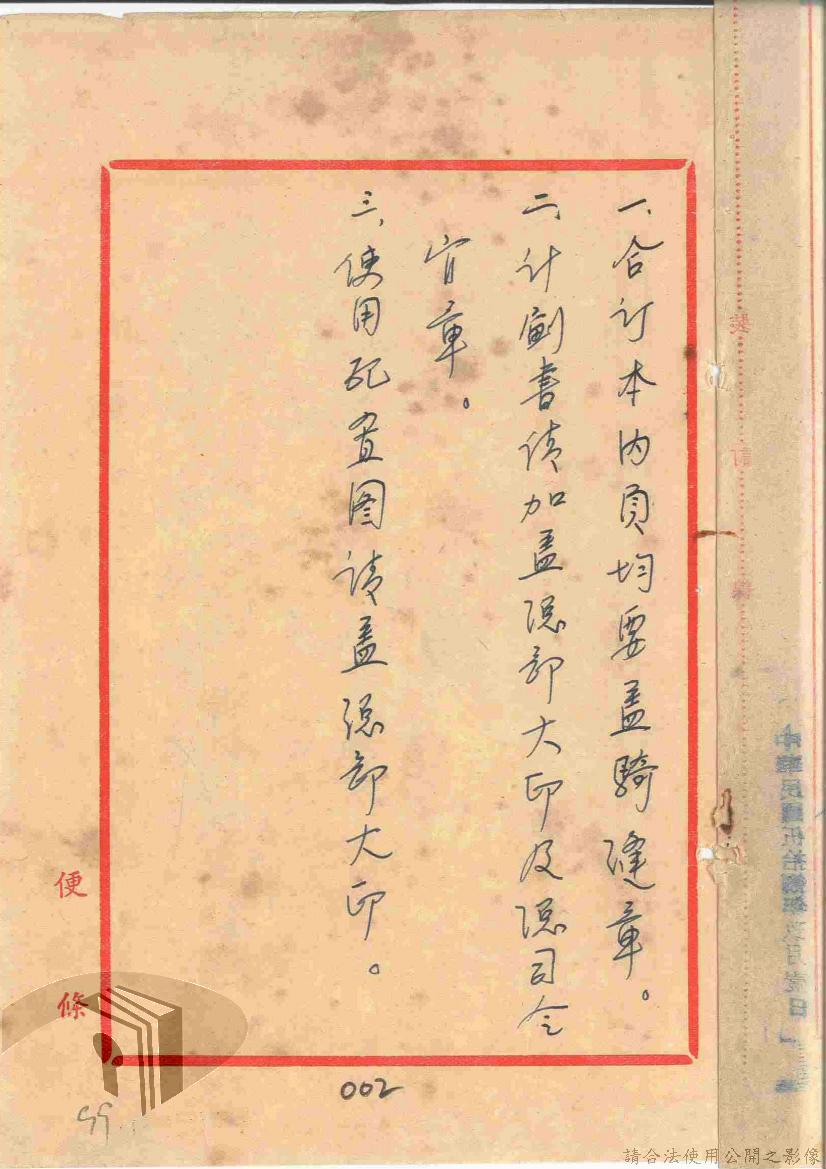 一、合訂本內頁均要蓋騎縫章。
二、計劃書請加蓋总部大印及总司令
官章。
三、使用配置图請蓋总部大印。
便條
002
99
裝訂線
請合法使用公開之影像